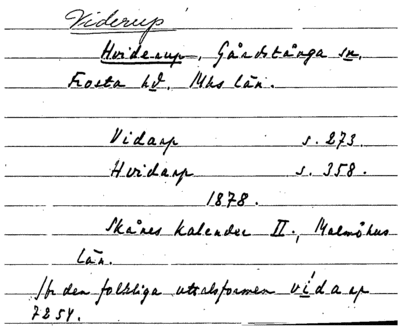 Viderup
Hviderup, Gårdstånga sn,
Frosta hd, Mhs län.
Vidarp s. 273
Hvidarp s. 358.
1878.
Skånes kalender II., Malmöhus
län.
Jfr den folkliga uttalsformen vídarp
7254.